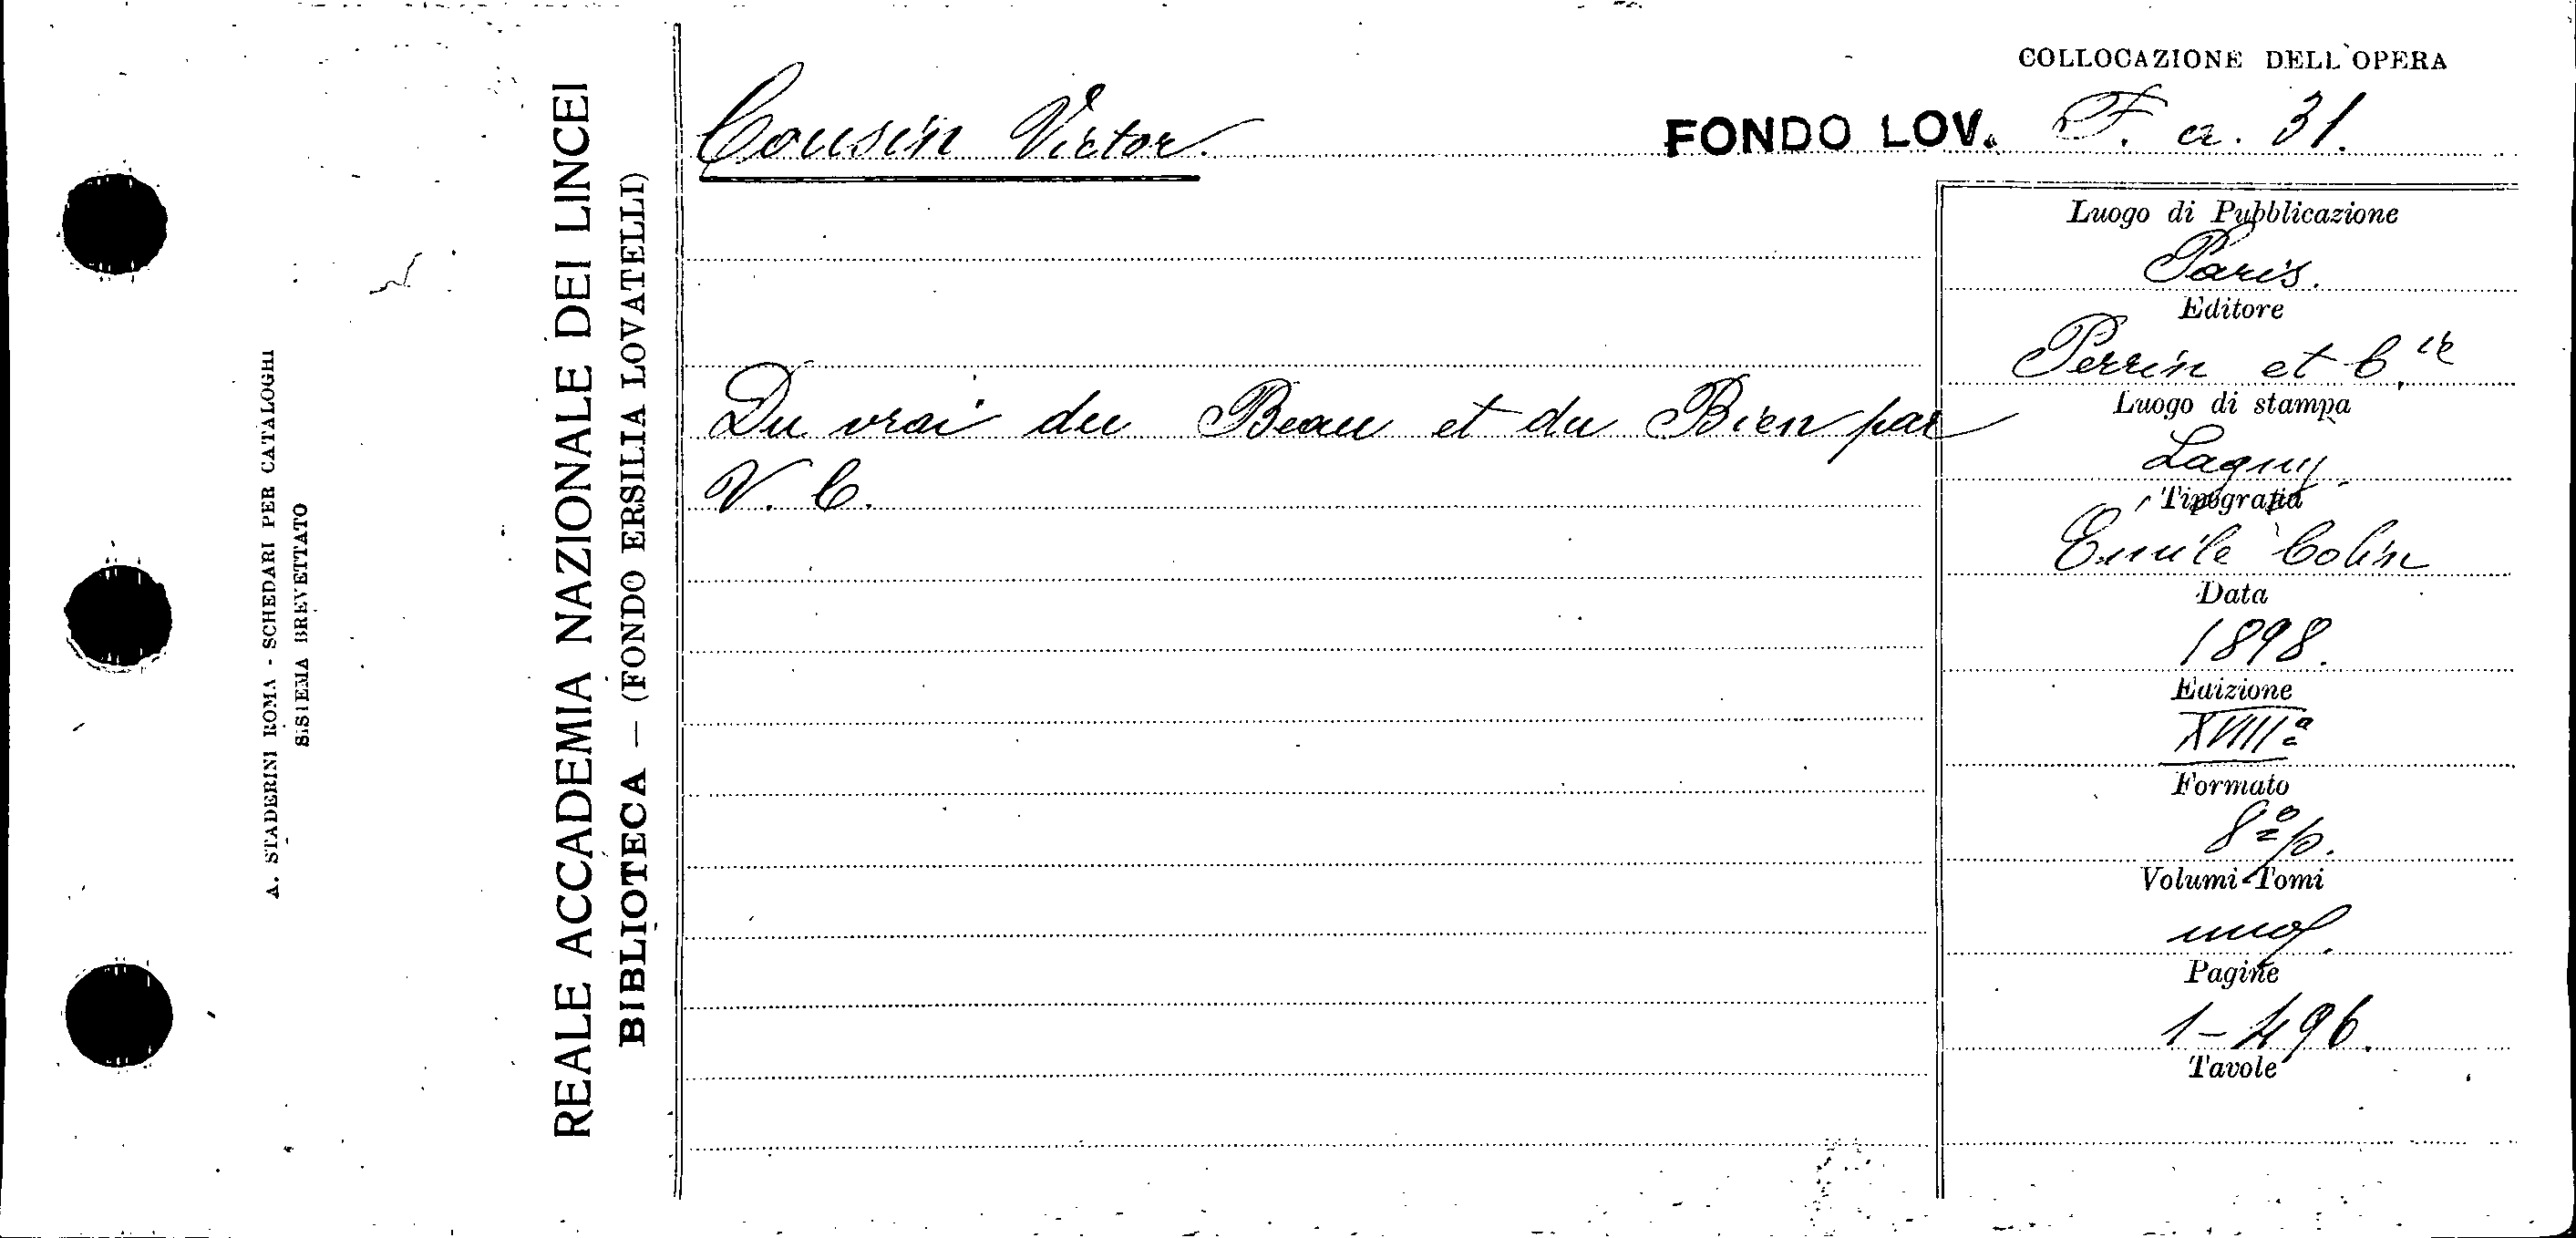 COLLOCAZIONE DELL'OPERA
Cousin Victor.
FONDO LOV. F. a. 31.
Du vrai du Beau et du Bien par
V. C.
Luogo di Pubblicazione
Paris.
Editore
Perrin et C.ie
Luogo di stampa
Lagny
Tipografia
Emile Colin
Data
1898.
Edizione
XVIIIª
Formato
8º p.
Volumi-Tomi
uno.
Pagine
1-496.
Tavole
REALE ACCADEMIA NAZIONALE DEI LINCEI
BIBLIOTECA — (FONDO ERSILIA LOVATELLI)
A. STADERINI ROMA - SCHEDARI PER CATALOGHI
SISTEMA BREVETTATO